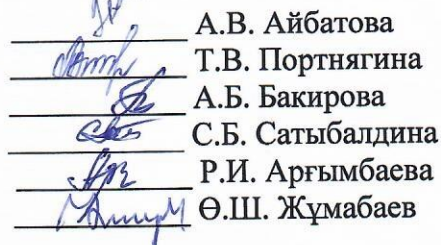 А.В. Айбатова
Т.В. Портнягина
А.Б. Бакирова
С.Б. Сатыбалдина
Р.И. Арғымбаева
Ө.Ш. Жұмабаев